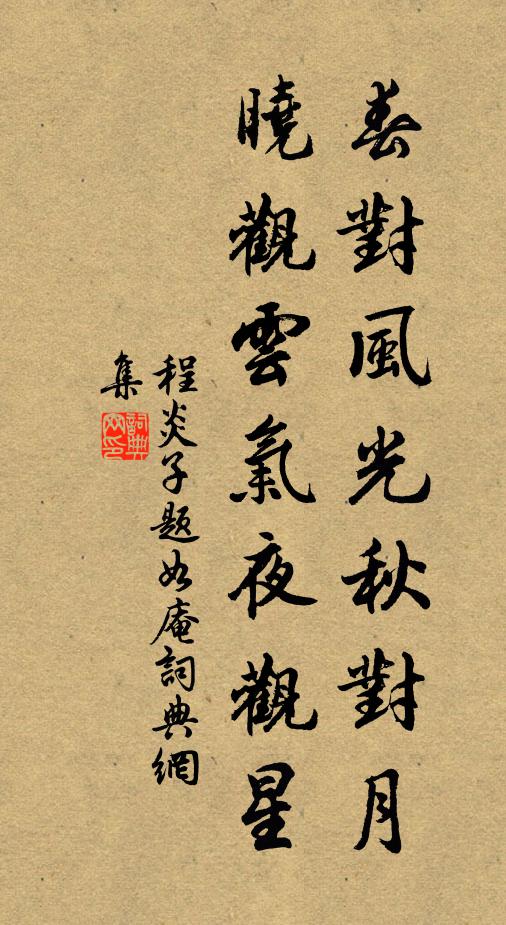 春對風光秋對月
曉觀雲氣夜觀星
程炎子題如庵詞典網
集
詞典
網印